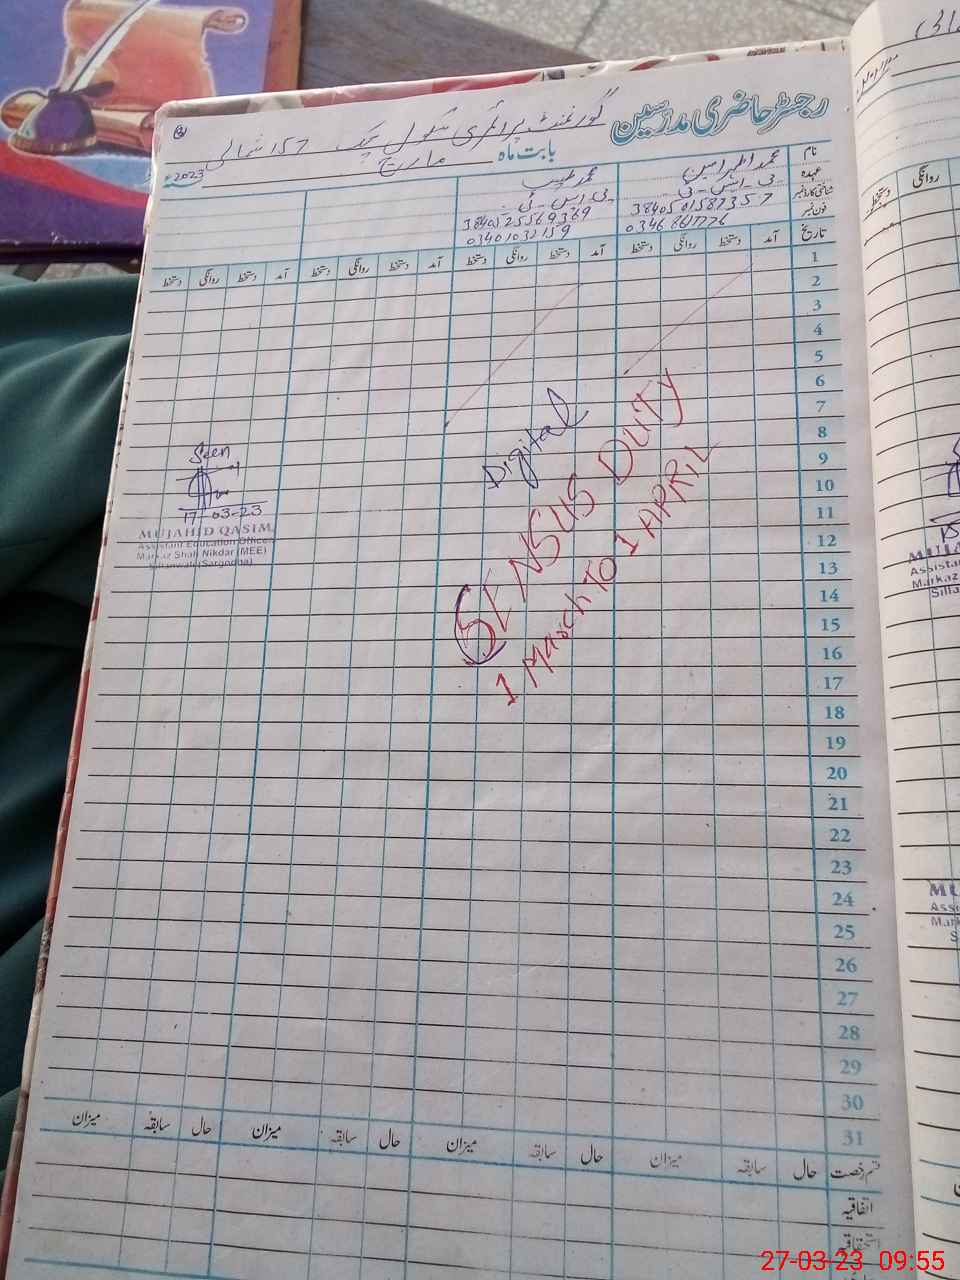 رجسٹر حاضری مدرسین
گورنمنٹ پرائمری سکول چک 157 شمالی
بابت ماہ مارچ 2023ء
نام
عہدہ
شناختی کارڈ نمبر
فون نمبر
تاریخ
محمد طیب
پی۔ایس۔ٹی
پی۔ایس۔ٹی
آمد دستخط روانگی دستخط آمد دستخط روانگی دستخط آمد دستخط روانگی دستخط آمد دستخط روانگی دستخط
1
2
3
4
5
6
7
8
9
10
11
12
13
14
15
16
17
18
19
20
21
22
23
24
25
26
27
28
29
30
31
Digital
SENSUS DUTY
1 March To 1 APRIL
Seen
17-03-23
MUJAHID QASIM
Assistant Education Officer
Markaz Shah Nikdar (MEE)
Sillanwali (Sargodha)
قسم رخصت حال سابقہ میزان حال سابقہ میزان حال سابقہ میزان حال سابقہ میزان
اتفاقیہ
استحقاقیہ
روانگی دستخط
27-03-23 09:55